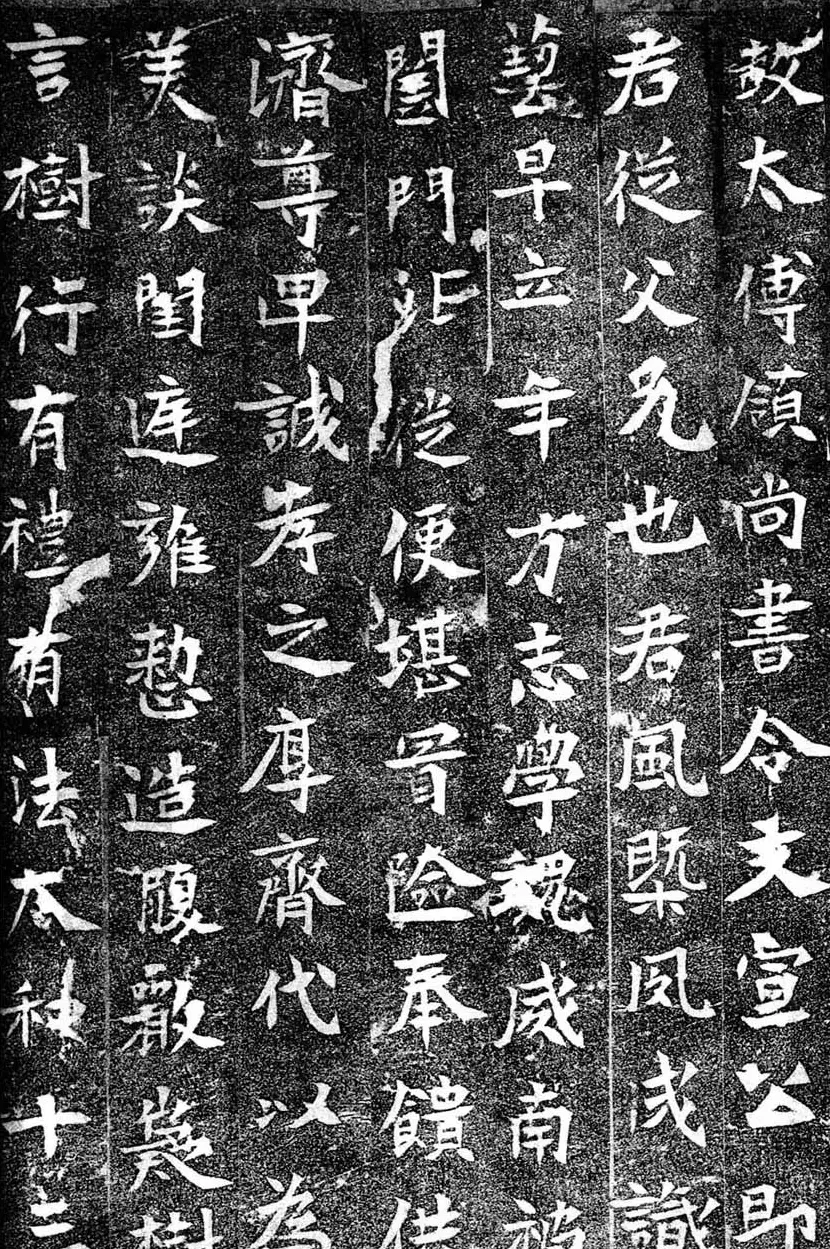 故太傅領尚書令文宣公即
君從父兄也君風槩夙成識
藝早立年方志學魏威南被
闔門北從便堪冒險奉饋供
濟尊卑誠孝之厚齊代以為
美談閨庭雍慤造樹
言樹行有禮有法太和十三